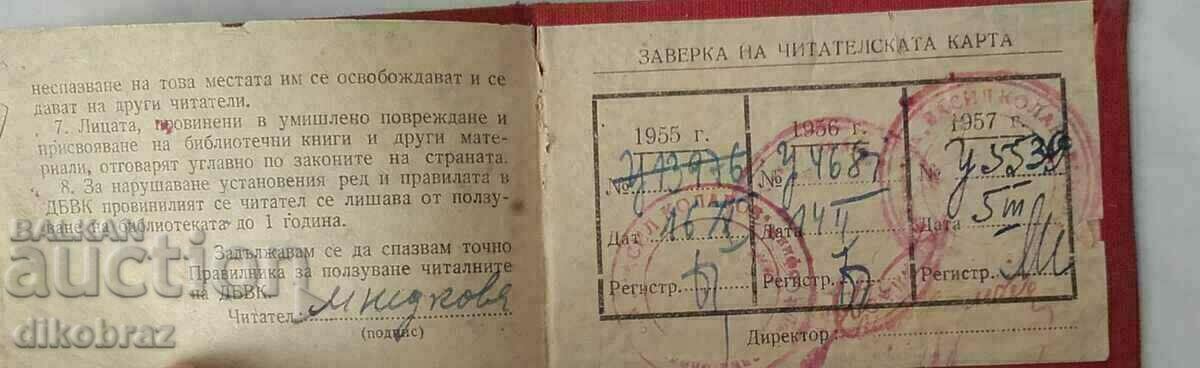 неспазване на това местата им се освобождават и се
дават на други читатели.
7. Лицата, провинени в умишлено повреждане и
присвояване на библиотечни книги и други мате-
риали, отговарят углавно по законите на страната.
8. За нарушаване установения ред и правилата в
ДБВК провинилият се читател се лишава от ползу-
ване на библиотеката до 1 година.
Задължавам се да спазвам точно
Правилника за ползуване читалните
на ДБВК.
Читател:
(подпис)
ЗАВЕРКА НА ЧИТАТЕЛСКАТА КАРТА
1955 г.
№ У 13976
Дат 16
Регистр.
1956 г.
№ У 4687
Дата 14 II
Регистр.
1957 г.
№ У 5536
Дата 5 III
Регистр.
Директор:
ВАСИЛ КОЛАРОВ
БАЛКАН
auction
dikobraz